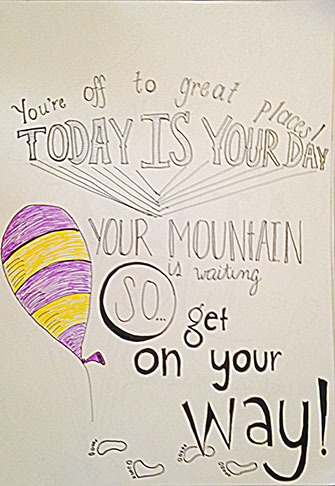 You're off to great places!
TODAY IS YOUR DAY
YOUR MOUNTAIN
is waiting
SO...
get
on your
way!